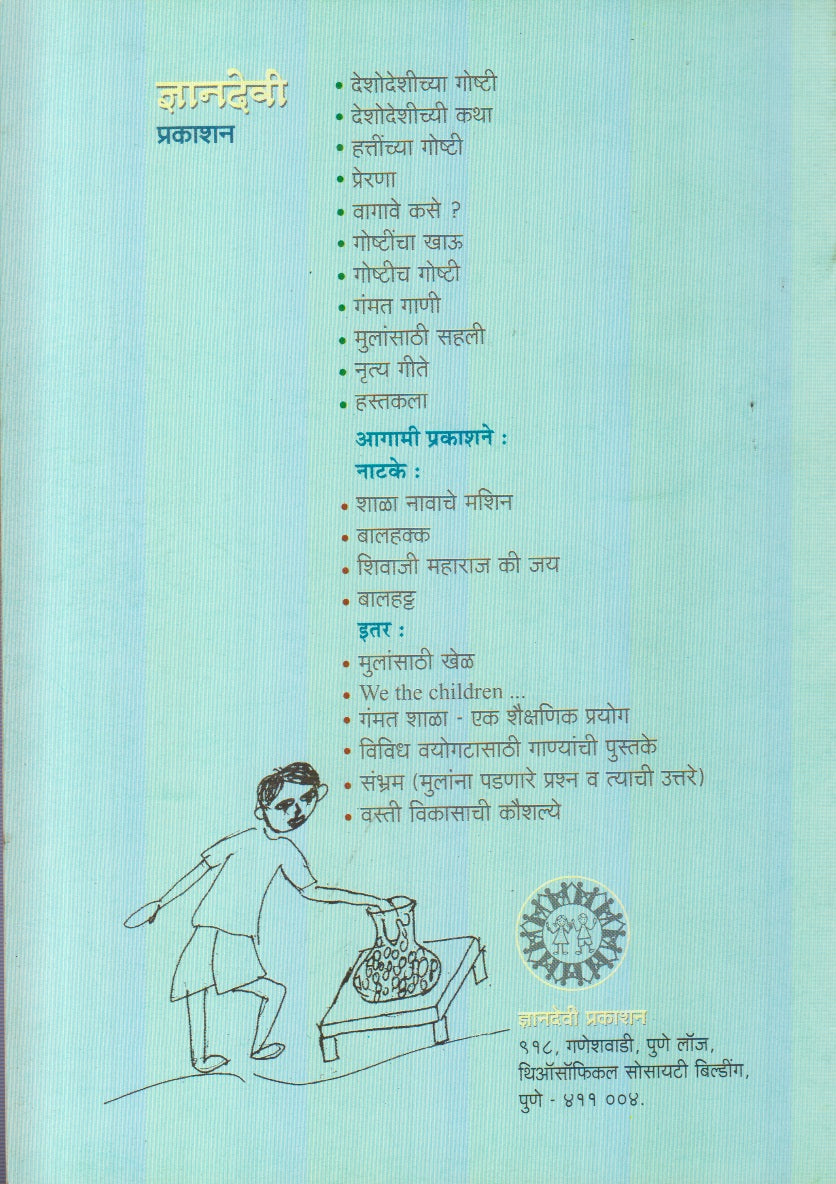 ज्ञानदेवी
प्रकाशन
• देशोदेशीच्या गोष्टी
• देशोदेशीच्यी कथा
• हत्तींच्या गोष्टी
• प्रेरणा
• वागावे कसे ?
• गोष्टींचा खाऊ
• गोष्टीच गोष्टी
• गंमत गाणी
• मुलांसाठी सहली
• नृत्य गीते
• हस्तकला
आगामी प्रकाशने :
नाटके :
• शाळा नावाचे मशिन
• बालहक्क
• शिवाजी महाराज की जय
• बालहट्ट
इतर :
• मुलांसाठी खेळ
• We the children ...
• गंमत शाळा - एक शैक्षणिक प्रयोग
• विविध वयोगटासाठी गाण्यांची पुस्तके
• संभ्रम (मुलांना पडणारे प्रश्न व त्याची उत्तरे)
• वस्ती विकासाची कौशल्ये
ज्ञानदेवी प्रकाशन
९१८, गणेशवाडी, पुणे लॉज,
थिऑसॉफिकल सोसायटी बिल्डींग,
पुणे - ४११ ००४.